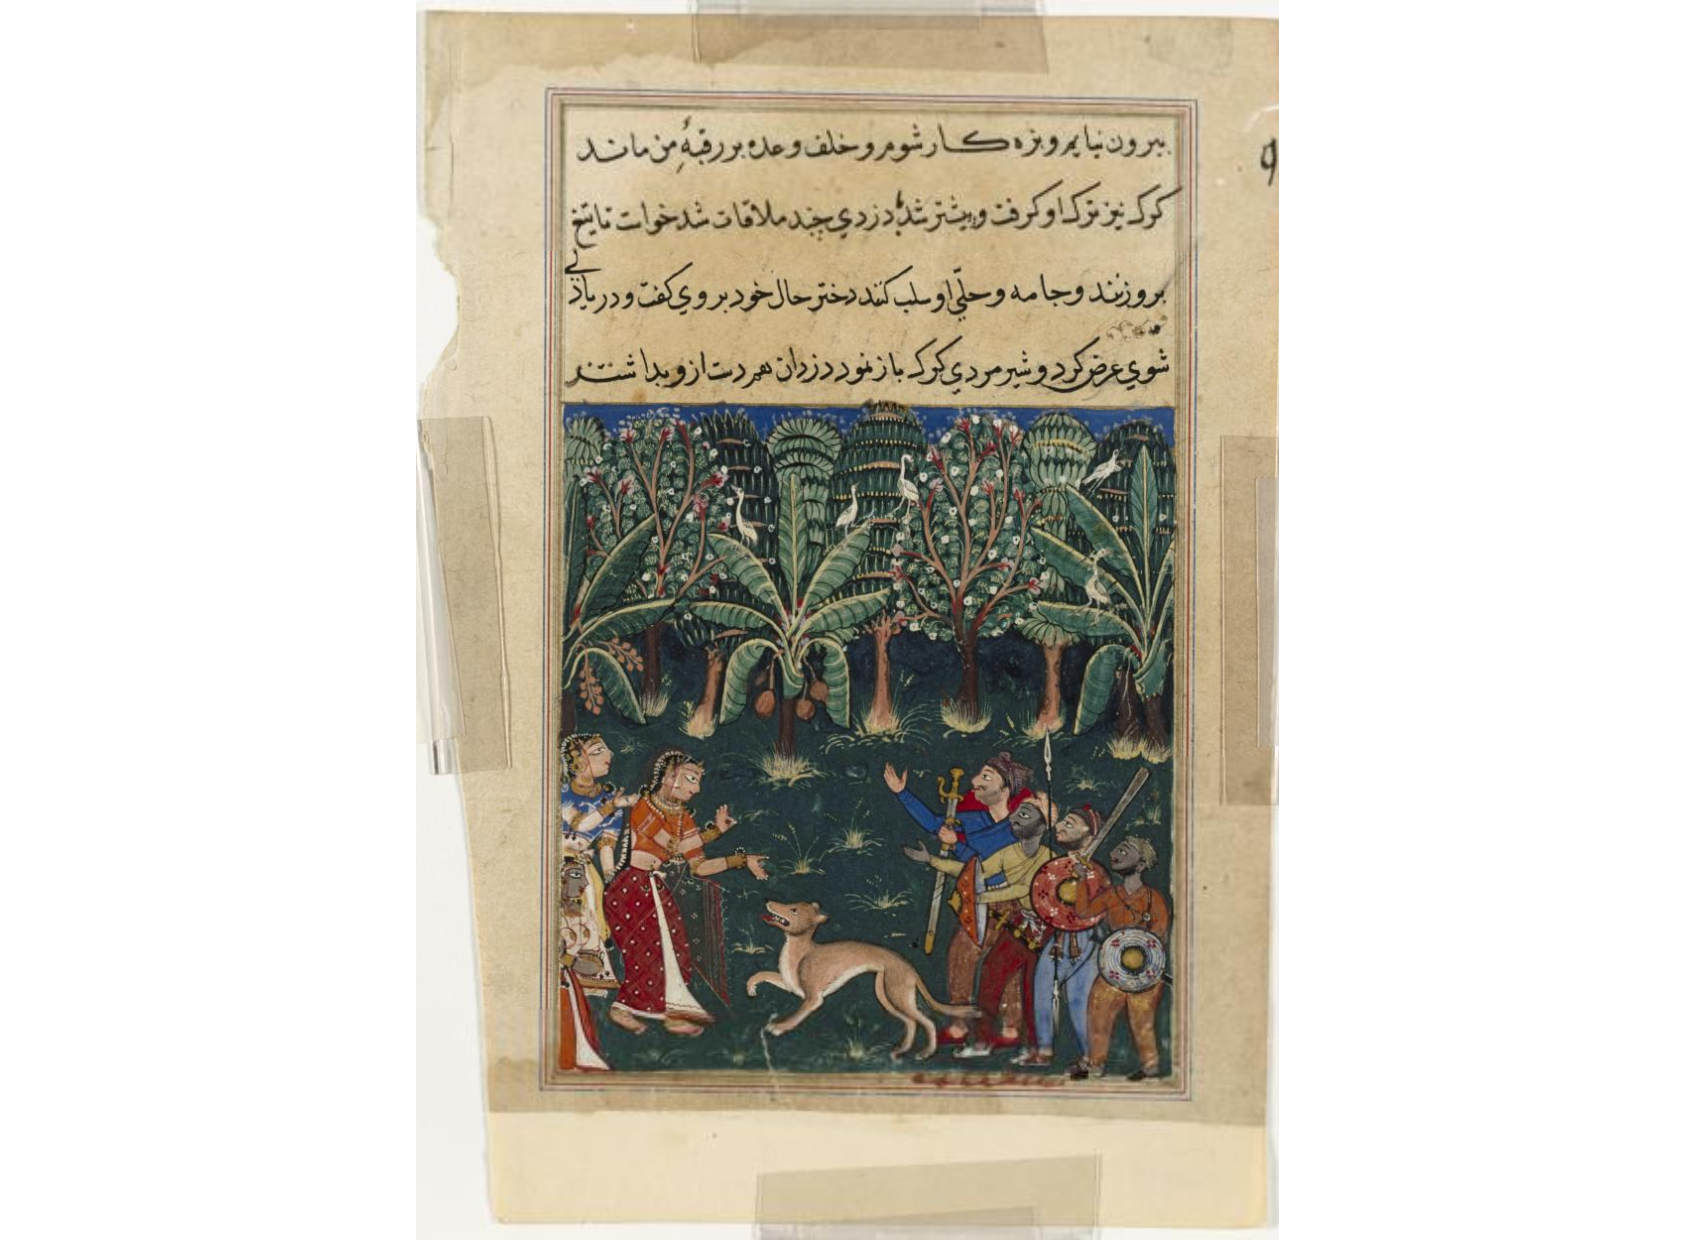 بیرون نیایم و بزه کار شوم و خلف وعده بر رقبهٔ من ماند
کرک نیز ترک او کرفت و بیشتر شد با دزدي چند ملاقات شد خواست تا تیغ
برو زنند و جامه و حلّي او سلب کنند دختر حال خود بر وي کفت و در باز
شوي عرض کرد و شیر مردي کرک باز نمود دزدان هم دست ازو بداشتند